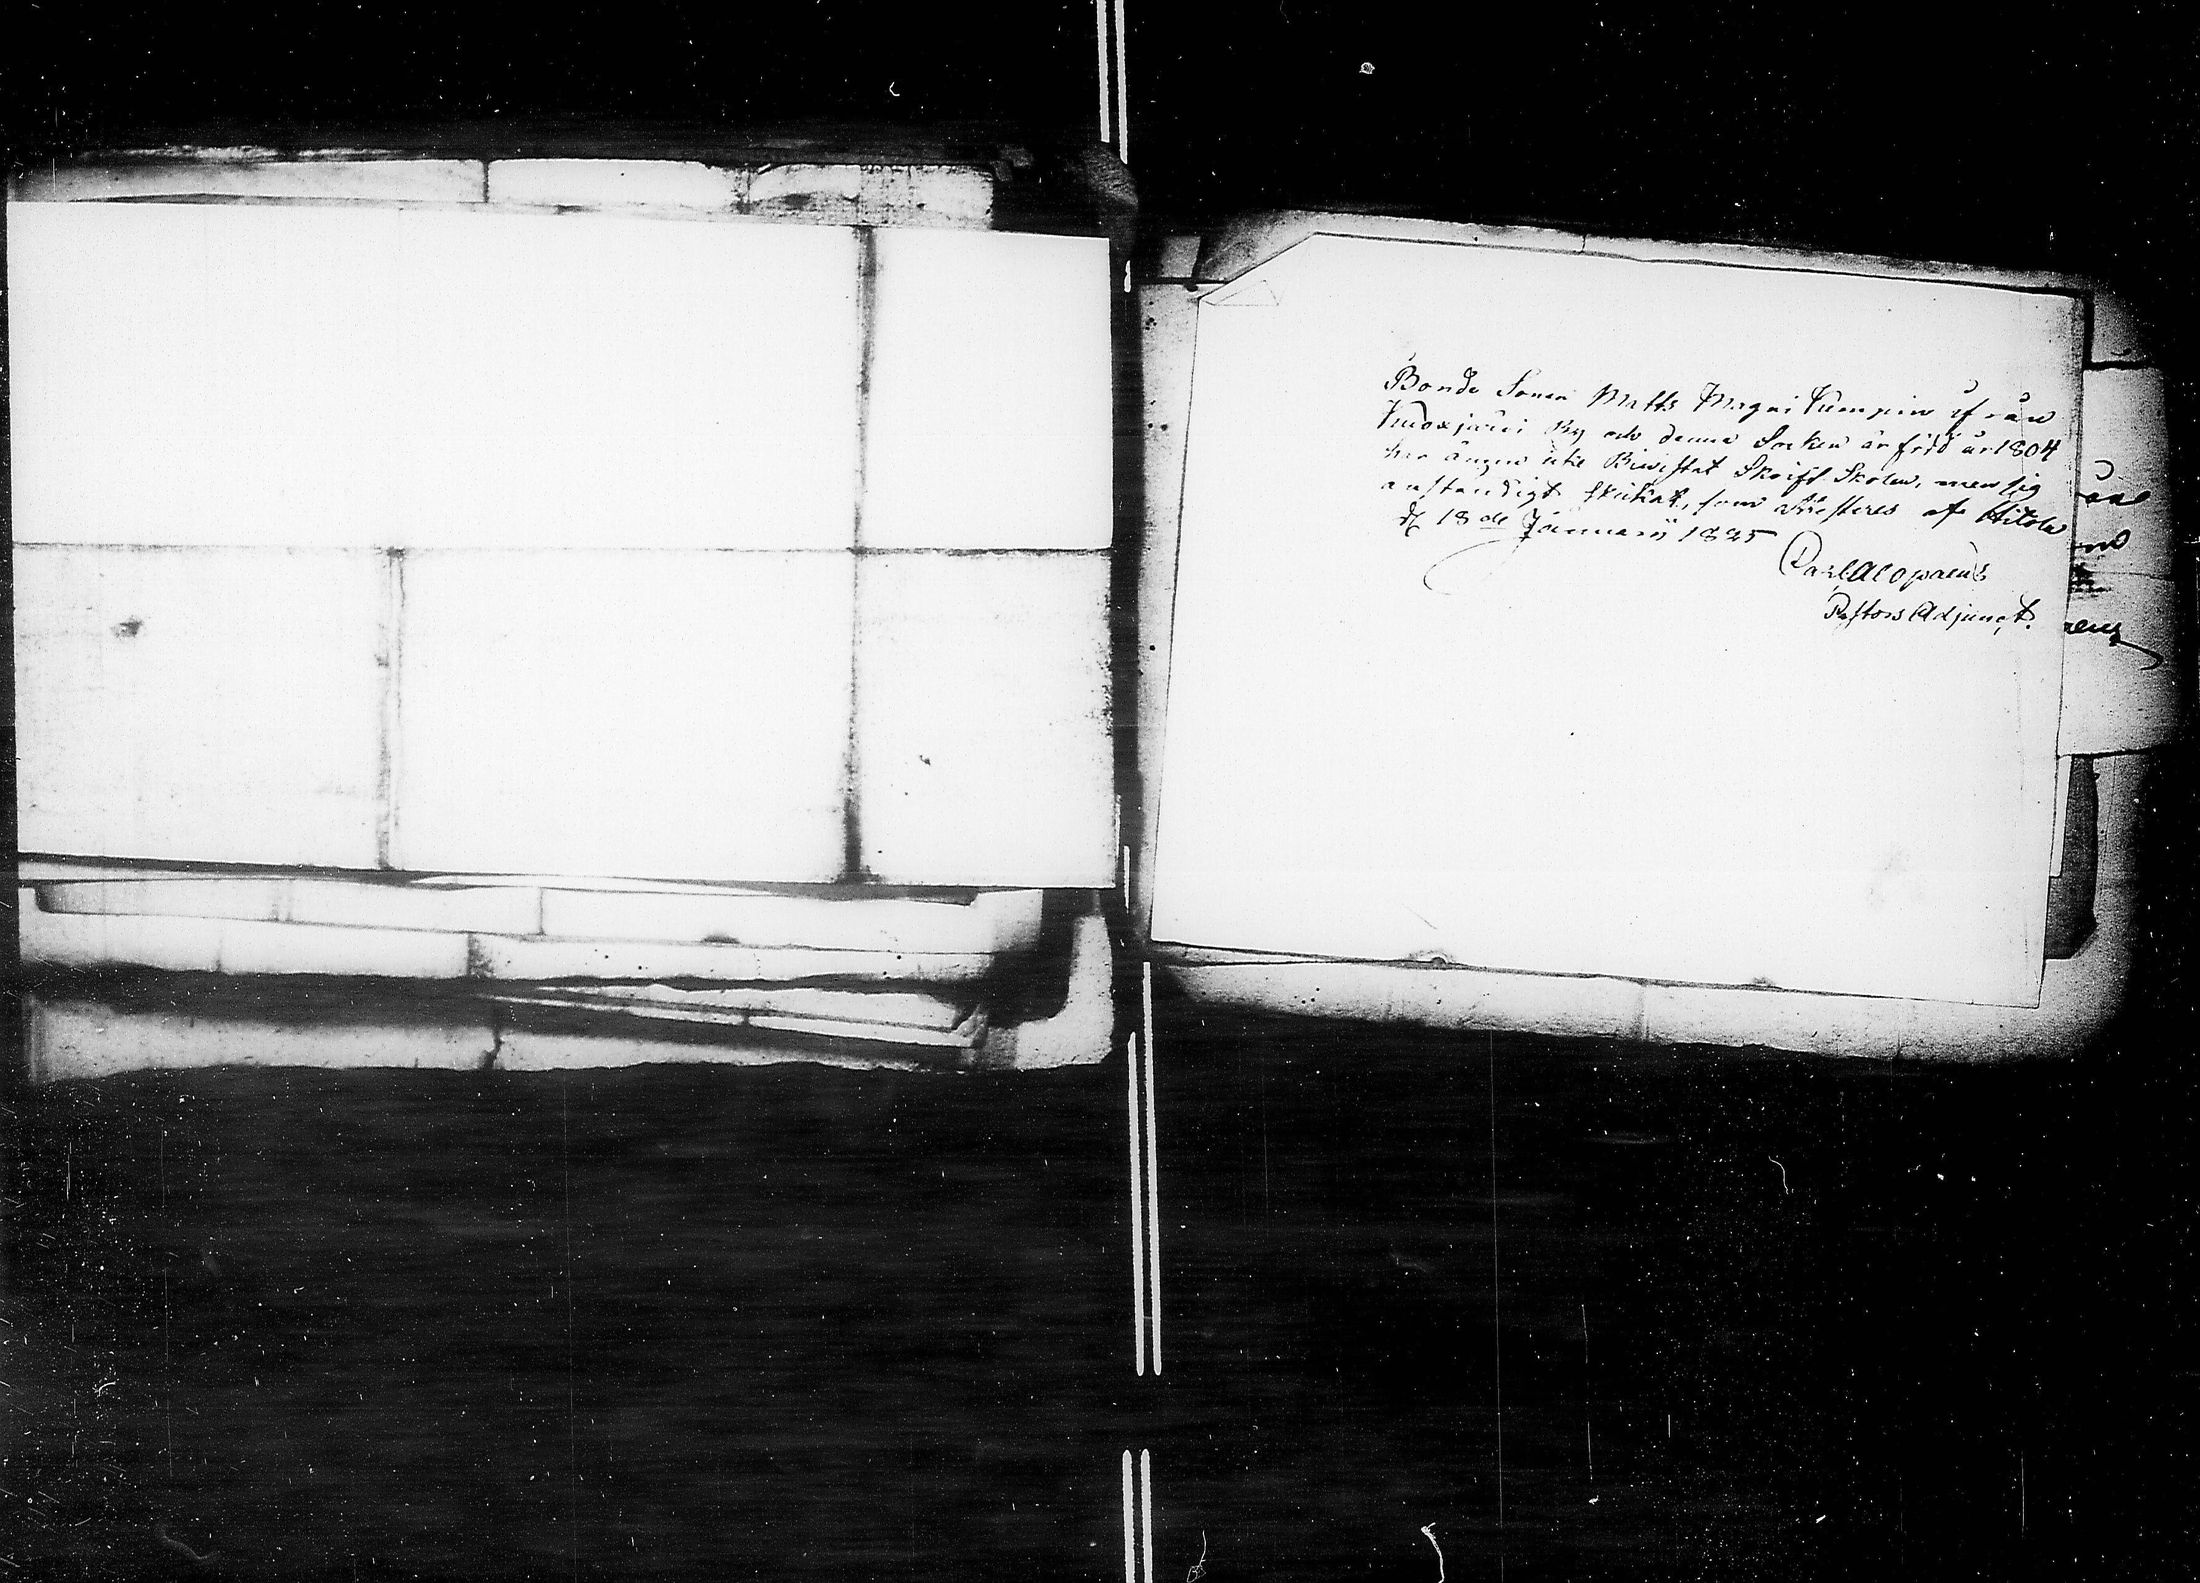 Bonde Sonen Matts Magni Kumpin ifrån
Kuoxjärvi By och denna Socken är född år 1804
har ången utie Biwistat Skrift Skolan, men sig
anständigt skickat, som attesteras af Hitola
d 18de Januarii 1825
Carl Alopaeus
Pastors Adjunct.